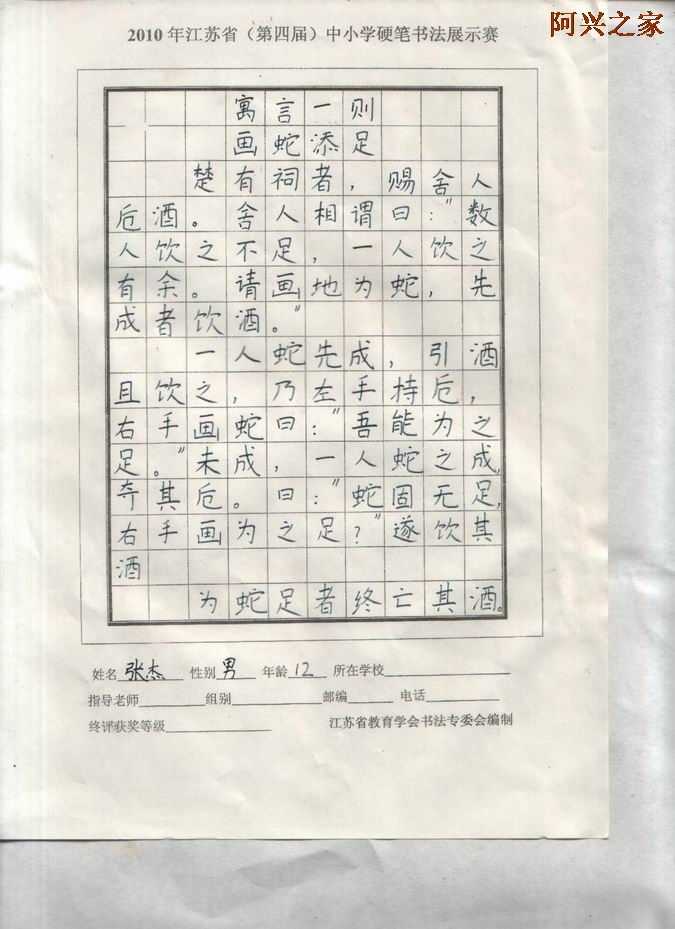 阿兴之家
2010 年江苏省（第四届）中小学硬笔书法展示赛
寓言一则
画蛇添足
楚有祠者，赐舍人
卮酒。舍人相谓曰："数
人饮之不足，一人饮之
有余。请画地为蛇，先
成者饮酒。"
一人蛇先成，引酒
且饮之，乃左手持卮，
右手画蛇曰："吾能为之
足。"未成，一人蛇之成，
夺其卮。曰："蛇固无足，
右手画为之足？"遂饮其
酒
为蛇足者终亡其酒。
姓名 张杰 性别 男 年龄 12 所在学校
指导老师 组别 邮编 电话
终评获奖等级 江苏省教育学会书法专委会编制